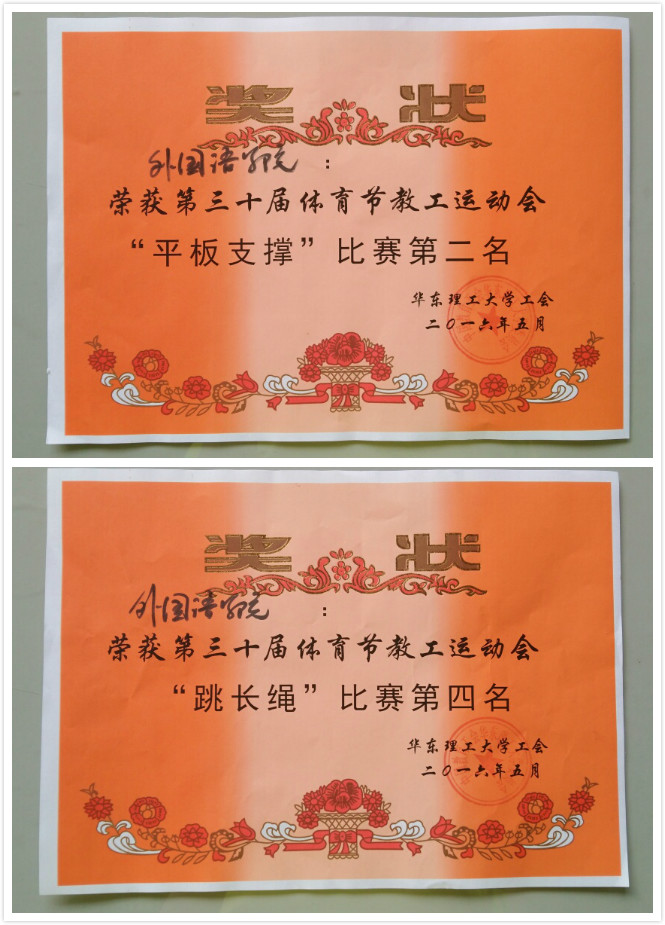 奖状
外国语学院：
荣获第三十届体育节教工运动会
“平板支撑”比赛第二名
华东理工大学工会
二〇一六年五月
奖状
外国语学院：
荣获第三十届体育节教工运动会
“跳长绳”比赛第四名
华东理工大学工会
二〇一六年五月